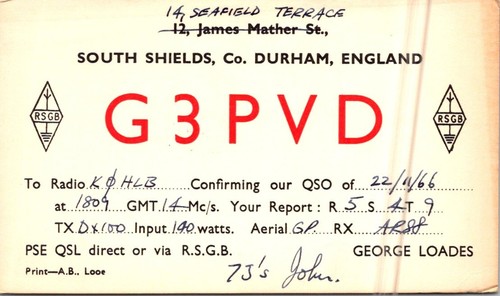 14, SEAFIELD TERRACE
12, James Mather St.,
SOUTH SHIELDS, Co. DURHAM, ENGLAND
RSGB G3PVD RSGB
To Radio KØHLB Confirming our QSO of 22/11/66
at 1809 GMT 14 Mc/s. Your Report: R 5 S 4 T 9
TX DX100 Input 140 watts. Aerial GP. RX AR88
PSE QSL direct or via R.S.G.B. GEORGE LOADES
Print—A.B., Looe 73's John.